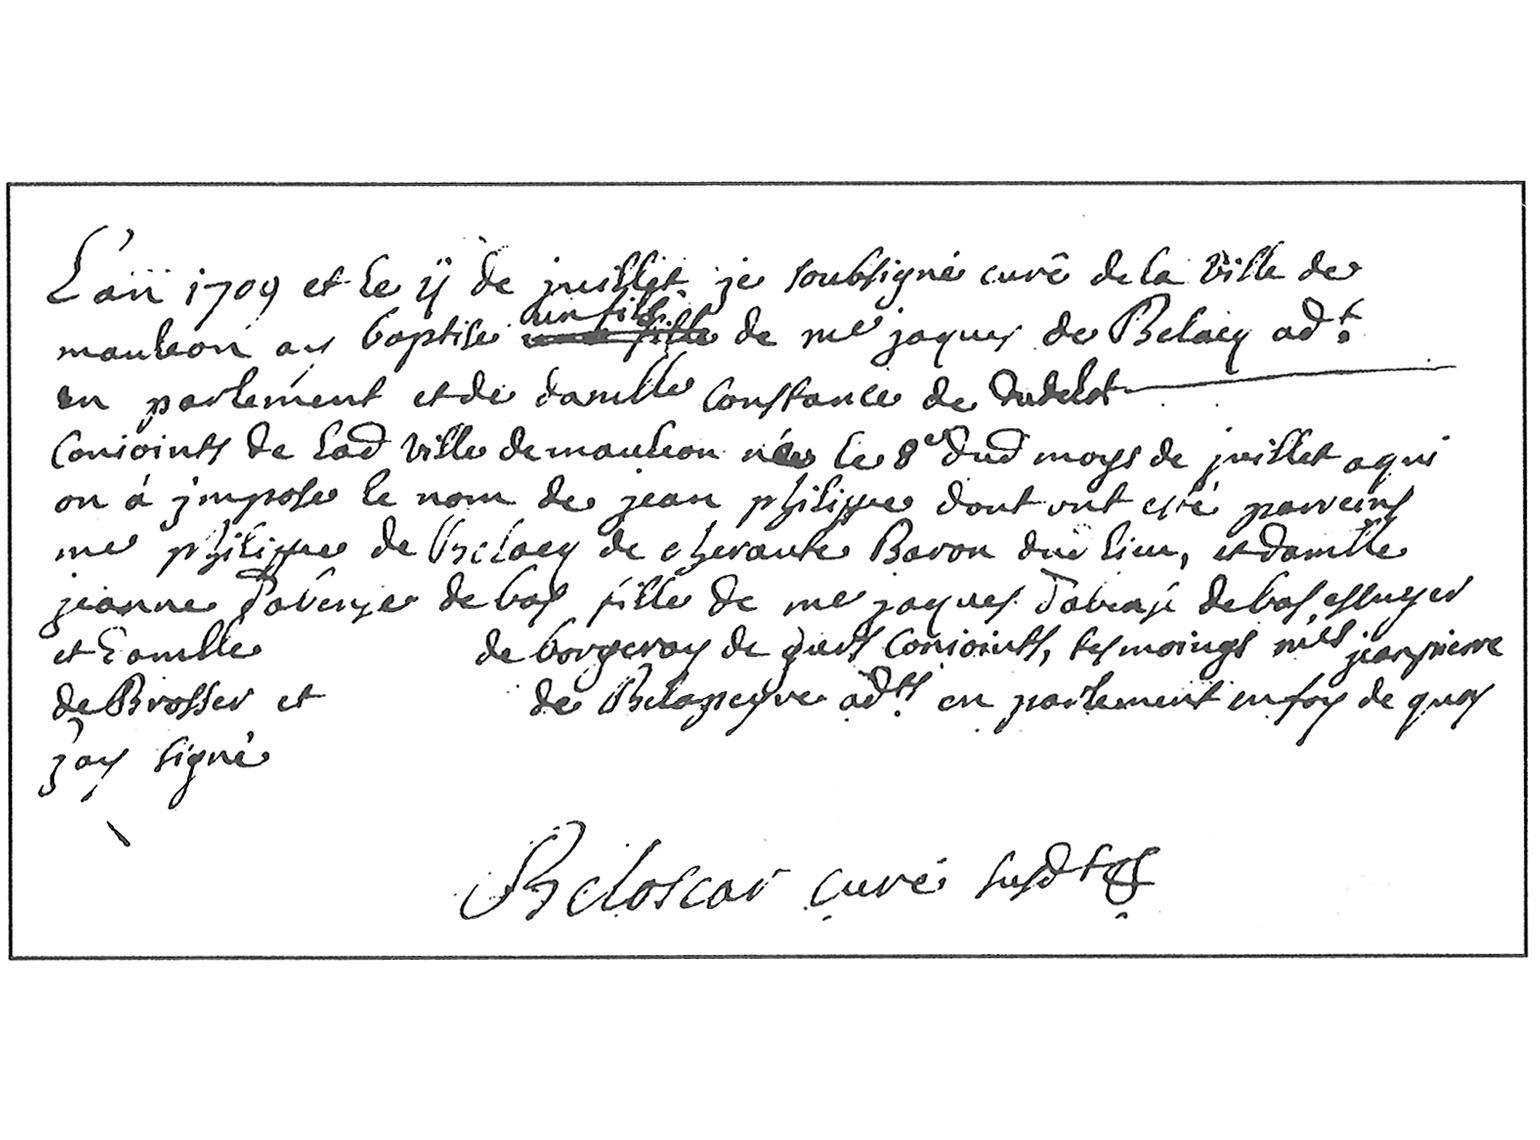 L'an 1709 et le ij de juillet je soubsigné curé de la Ville de
mauleon ay baptise un fils de me jaques de Belacq adt.
en parlement et de damlle Constance de
Conioints de Lad Ville de mauleon née le 8e dud moys de juillet a qui
on á jmposé le nom de jean philippe dont ont esté parreins
me philippe de Belacq de cheraute Baron dud lieu, et damlle
jeanne de bas fille de me jaques de bas escuyer
et damlle de de Conioints, tesmoings mes jean pierre
de Brosser et de Belapeyre adts. en parlement en foy de quoy
j'ay signé
Beloscar curé susdt